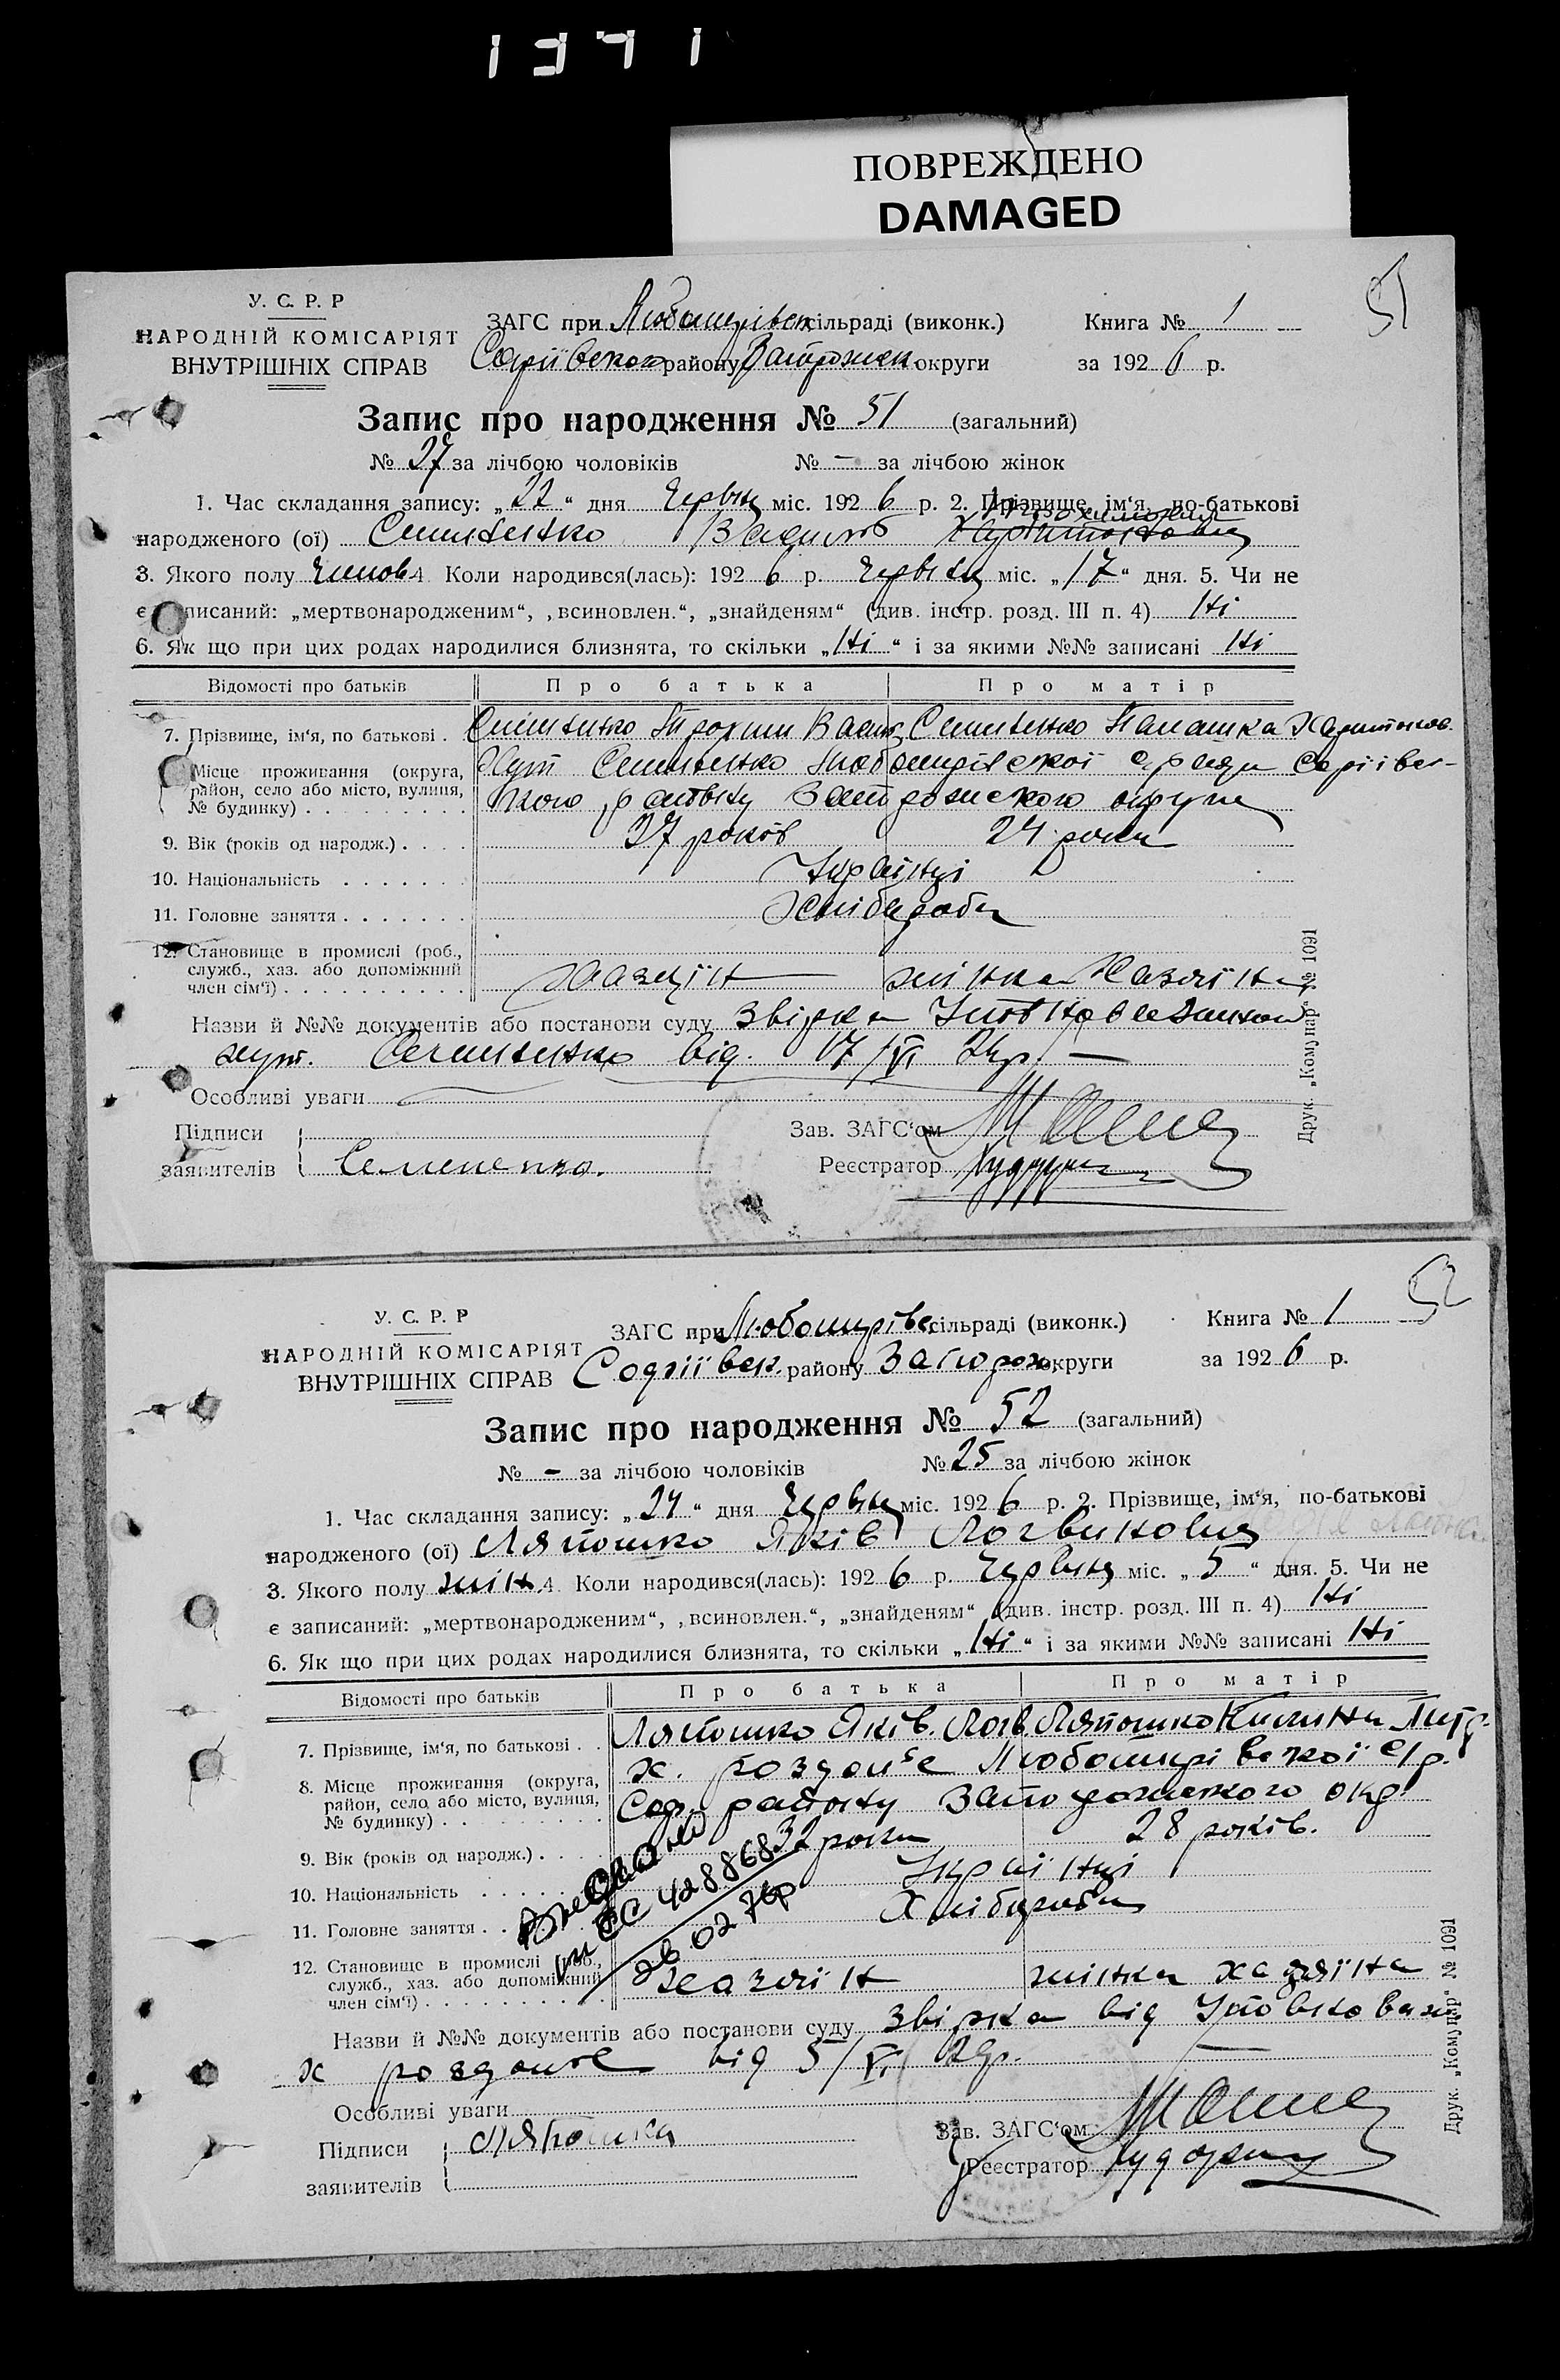 1371
ПОВРЕЖДЕНО
DAMAGED
51
У. С. Р. Р
НАРОДНІЙ КОМІСАРІЯТ
ВНУТРІШНІХ СПРАВ
ЗАГС при Любомирівск сільраді (виконк.)
Книга № 1
району округи
за 192 6 р.
Запис про народження № 51 (загальний)
№ 27 за лічбою чоловіків № – за лічбою жінок
1. Час складання запису: „22“ дня Червня міс. 192 6 р. 2. Прізвище, ім‘я, по-батькові
народженого (ої) Семененко
3. Якого полу 4 Коли народився(лась): 192 6 р. Червня міс. „17“ дня. 5. Чи не
є записаний: „мертвонародженим“, „всиновлен.“, „знайденям“ (див. інстр. розд. III п. 4) Ні
6. Як що при цих родах народилися близнята, то скільки „Ні“ і за якими №№ записані Ні
Відомості про батьків
Про батька
Про матір
7. Прізвище, ім‘я, по батькові . Семененко Семененко Палашка Харитонов.
Місце проживання (округа,
район, село або місто, вулиця,
№ будинку)
Хут Семененко Любомирівскої
району округи
9. Вік (років од народж.) . . . . 37 років 24 роки
10. Національність . . . . . . . Українці
11. Головне заняття . . . . . . . Хлібороби
12. Становище в промислі (роб.,
служб., хаз. або допоміжний
член сім‘ї) . . . . . . . . . .
Хазяїн жінка Хазяїна
Назви й №№ документів або постанови суду звірка
хут. Семененко від. 17/VI 26р. —
Особливі уваги
Підписи
заявителів
Семененко.
Зав. ЗАГС‘ом
Реєстратор
Друк. „Комунар“ № 1091
52
У. С. Р. Р
НАРОДНІЙ КОМІСАРІЯТ
ВНУТРІШНІХ СПРАВ
ЗАГС при Любомирівс сільраді (виконк.)
Книга № 1
Софіївск. району Запорож округи
за 192 6 р.
Запис про народження № 52 (загальний)
№ – за лічбою чоловіків № 25 за лічбою жінок
1. Час складання запису: „24“ дня Червня міс. 192 6 р. 2. Прізвище, ім‘я, по-батькові
народженого (ої) Ляпошко Яків Логвиновна
3. Якого полу жін. 4. Коли народився(лась): 192 6 р. Червня міс. „5“ дня. 5. Чи не
є записаний: „мертвонародженим“, „всиновлен.“, „знайденям“ (див. інстр. розд. III п. 4) Ні
6. Як що при цих родах народилися близнята, то скільки „Ні“ і за якими №№ записані Ні
Відомості про батьків
Про батька
Про матір
7. Прізвище, ім‘я, по батькові . . Ляпошко Яків. Логв Ляпошко Килина
8. Місце проживання (округа,
район, село або місто, вулиця,
№ будинку) . . . . . . . . .
х. роздолье Любомирівскої с/р.
Соф. району Запорожського окр
9. Вік (років од народж.) . . . . 32 роки 28 років.
10. Національність . . . . . . Українці
11. Головне заняття . . Хлібороби
12. Становище в промислі (роб.,
служб., хаз. або допоміжний
член сім‘ї) . . . . . . . . . .
хазяїн жінка хазяїна
428868
26 02 76р
Назви й №№ документів або постанови суду звірка від
х роздолье від 5/VI 26р.
Особливі уваги
Підписи
заявителів
Ляпошка
Зав. ЗАГС‘ом
Реєстратор
Друк. „Комунар“ № 1091